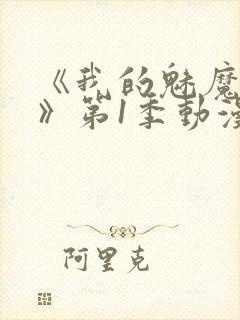 《我的魅魔
》第1季動漫
阿里克